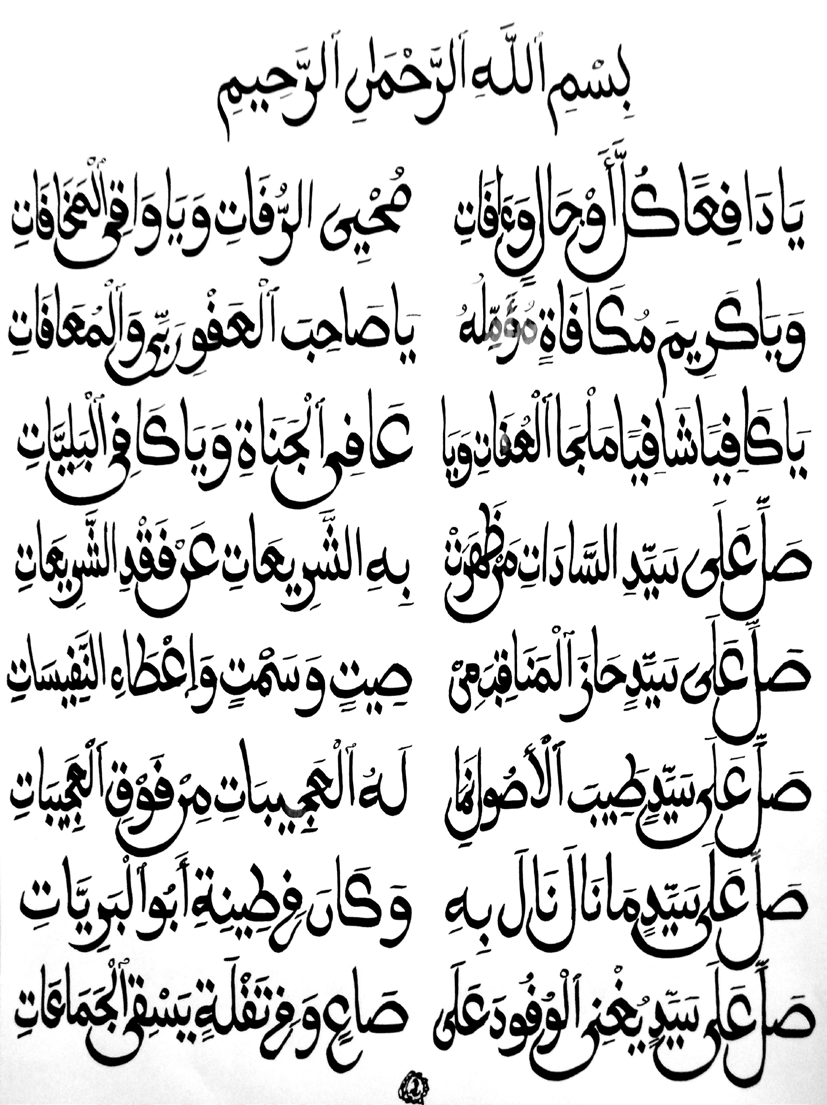 بِسْمِ ٱللَّهِ ٱلرَّحْمَٰنِ ٱلرَّحِيمِ
يَا دَافِعًا كُلَّ أَوْجَالٍ وَءَافَاتِ مُحْيِي الرُّفَاتِ وَيَا وَاقِي ٱلْمَخَافَاتِ
وَيَا كَرِيمَ مُكَافَاةٍ مُؤَمِّلِهُ يَا صَاحِبَ ٱلْعَفْوِ رَبِّي وَٱلْمُعَافَاتِ
يَا كَافِيًا شَافِيًا مَلْجَا ٱلْعُفَاتِ وَيَا عَافِي ٱلْجَنَاةِ وَيَا كَافِي ٱلْبَلِيَّاتِ
صَلِّ عَلَى سَيِّدِ السَّادَاتِ مَنْ ظَهَرَتْ بِهِ الشَّرِيعَاتِ عَنْ فَقْدِ الشَّرِيعَاتِ
صَلِّ عَلَى سَيِّدٍ حَازَ ٱلْمَنَاقِبَ مِنْ صِيتٍ وَسَمْتٍ وَإِعْطَاءِ النَّفِيسَاتِ
صَلِّ عَلَى سَيِّدٍ طِيبَ ٱلْأُصُولِ نَمَا لَهُ ٱلْعَجِيبَاتِ مِنْ فَوْقِ ٱلْعَجِيبَاتِ
صَلِّ عَلَى سَيِّدٍ مَا نَالَ نَالَ بِهِ وَكَانَ فِي طِينِةِ أَبُو ٱلْبَرِيَّاتِ
صَلِّ عَلَى سَيِّدٍ يُغْنِي ٱلْوُفُودَ عَلَى صَاعٍ وَفِي تَفْلَةٍ يَسْقِي ٱلْجَمَاعَاتِ